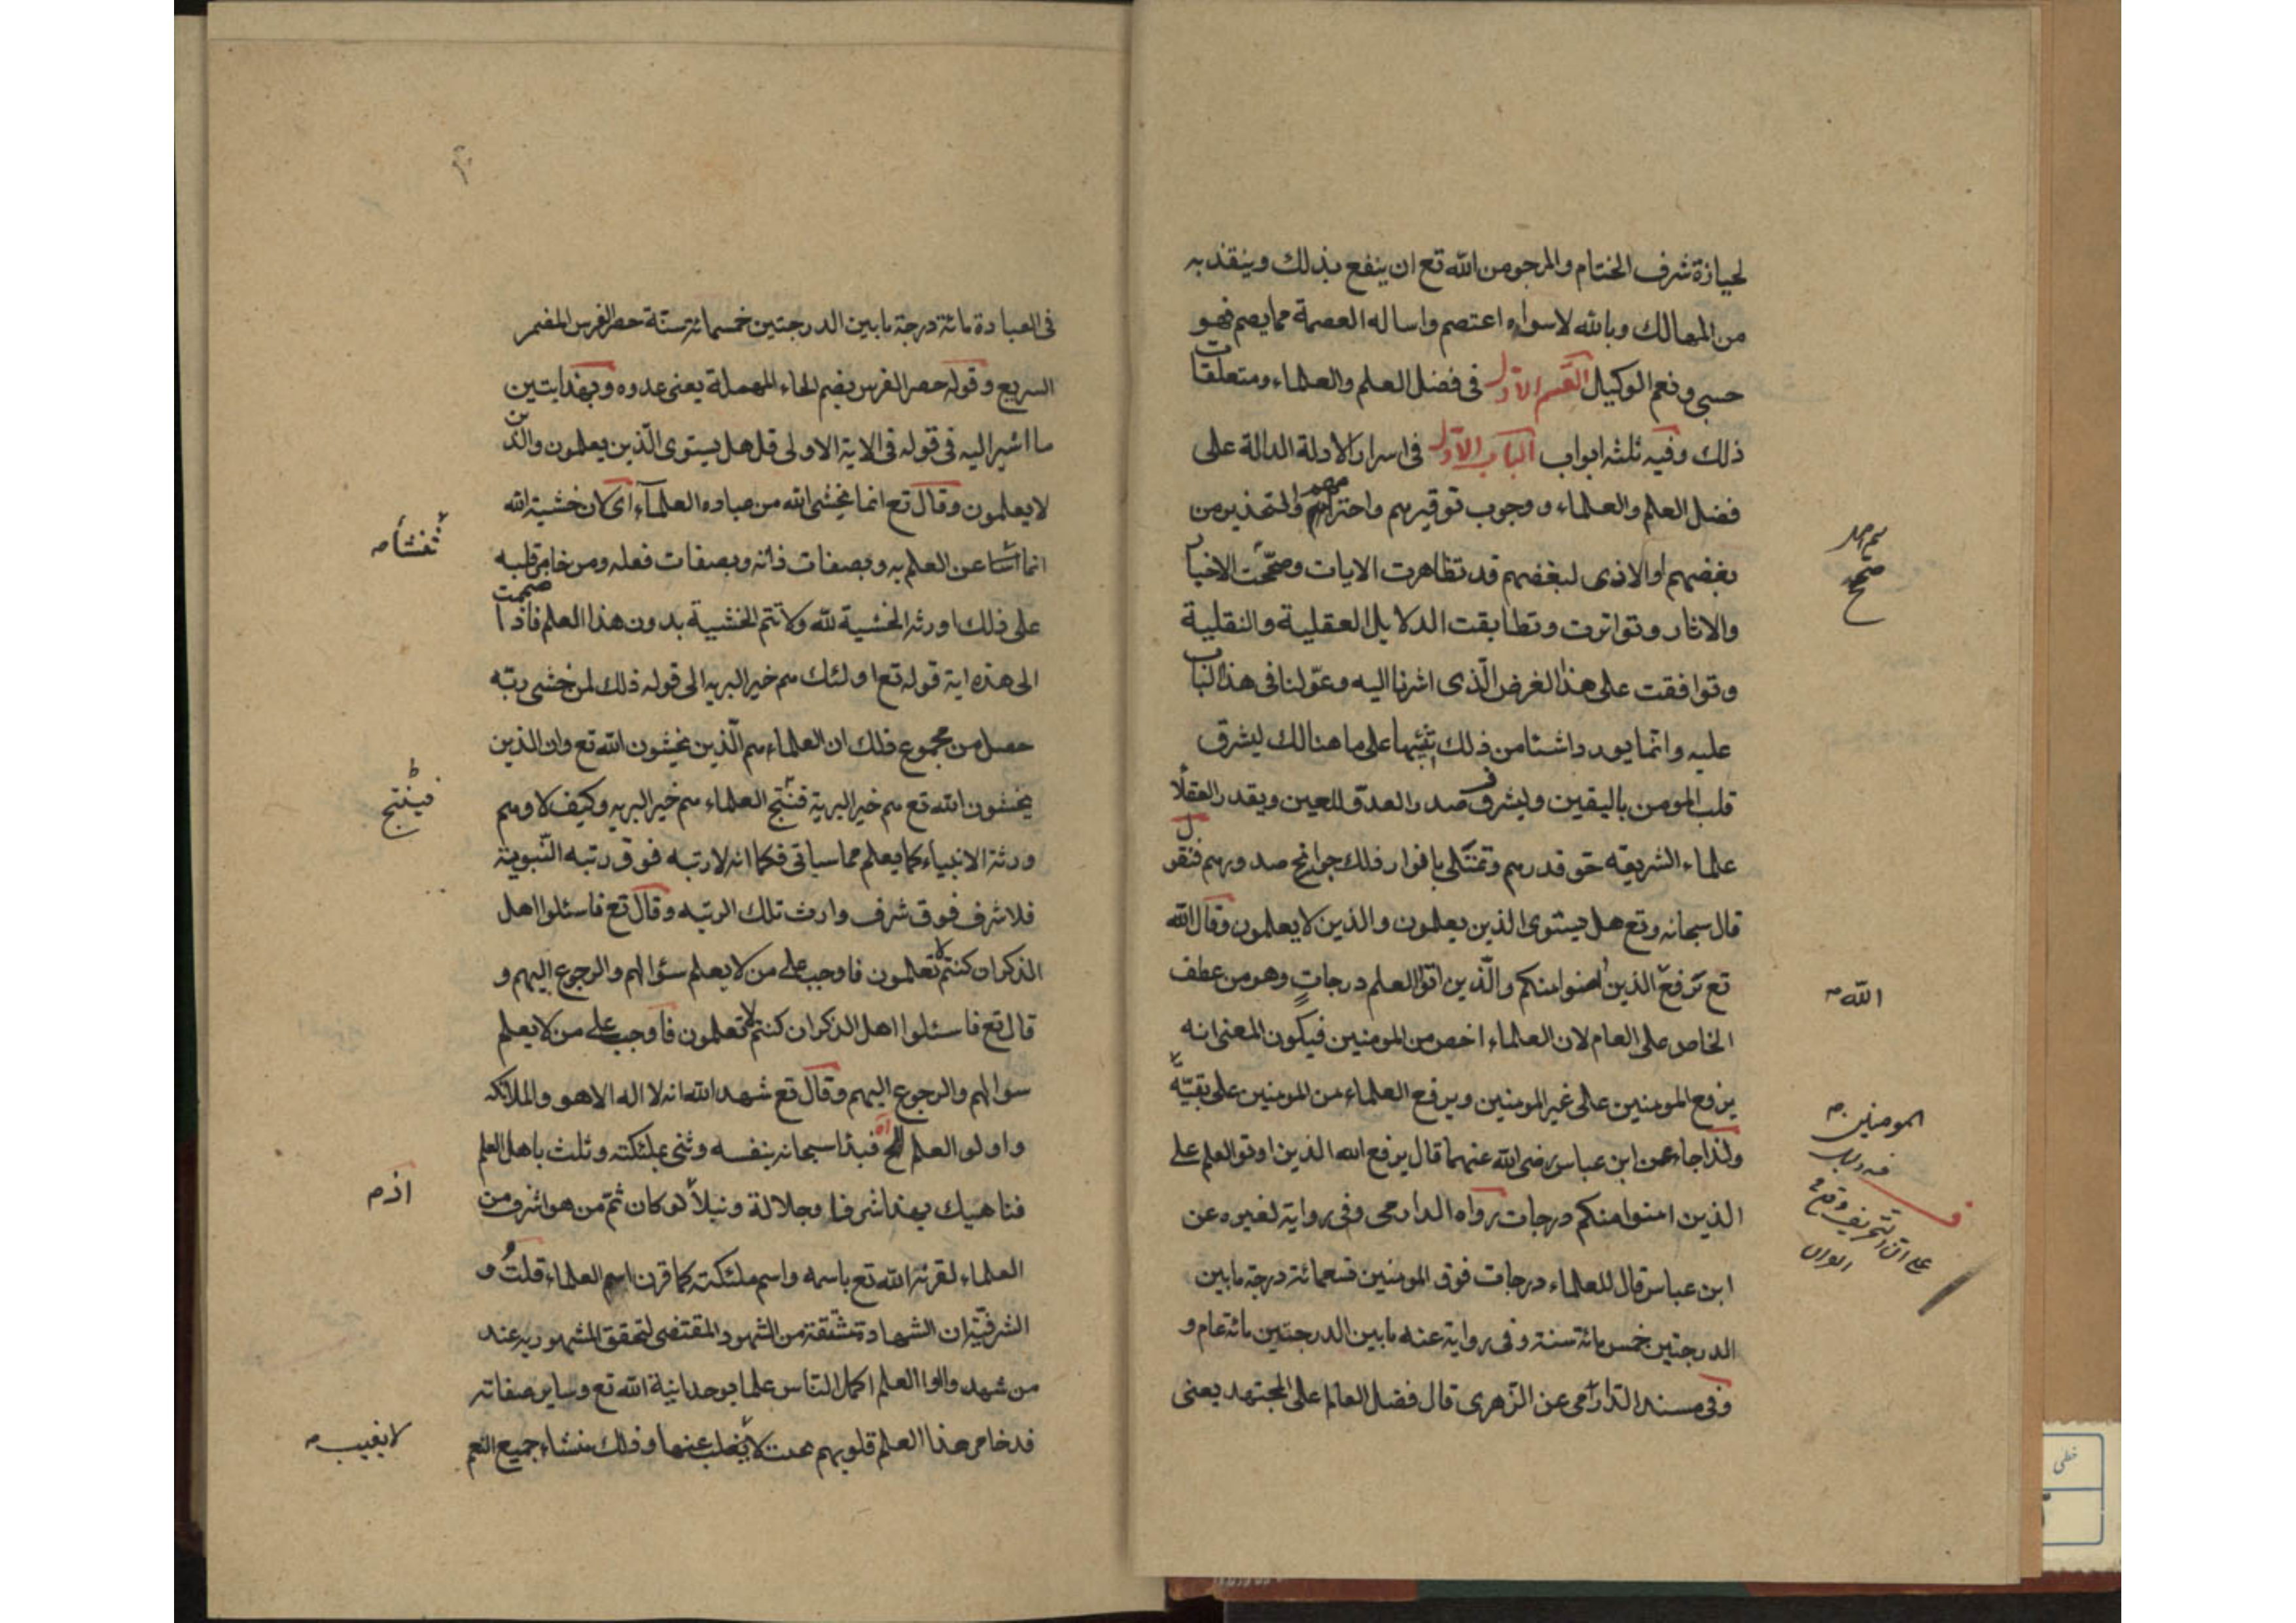 لحيازة شرف الختام والمرجو من الله تع ان ينفع بذلك وينقذ به
من المهالك وبالله لا سواه اعتصم واساله العصمة مما يصم فهو
حسبي ونعم الوكيل القسم الاول في فضل العلم والعلماء ومتعلقات
ذلك وفيه ثلثه ابواب الباب الاول في اسرار الادلة الدالة على
فضل العلم والعلماء ووجوب توقيرهم واحترامهم والتحذير من
بغضهم او الاذى لبعضهم قد تظاهرت الايات وصحت الاخبار
والاثار وتواترت وتطابقت الدلايل العقلية والنقلية
وتوافقت على هذا الغرض الذى اشرنا اليه وعولنا فى هذا الباب
عليه وانما يورد اشتا من ذلك تنبيها على ما هنالك ليشرق
قلب المومن باليقين وليشرق صدر العدو اللعين ويقدر العقلا
علماء الشريعه حق قدرهم وتمتلى بانوار ذلك جوانح صدورهم فنقول
قال سبحانه وتع هل يستوى الذين يعلمون والذين لا يعلمون وقال الله
تع يرفع الذين امنوا منكم والذين اوتوا العلم درجات وهو من عطف
الخاص على العام لان العلماء اخص من المومنين فيكون المعنى انه
يرفع المومنين على غير المومنين ويرفع العلماء من المومنين على بقية
ولذا جاء عن ابن عباس رضى الله عنهما قال يرفع الله الذين اوتوا العلم على
الذين امنوا منكم درجات رواه الدارمى وفى رواية لغيره عن
ابن عباس قال للعلماء درجات فوق المومنين تسعمائة درجة ما بين
الدرجتين خمس مائة سنة وفى رواية عنه ما بين الدرجتين مائة عام و
وفى مسند الدارمى عن الزهرى قال فضل العالم على المجتهد يعنى
صح
الله
المومنين
فى العبادة مائة درجة ما بين الدرجتين خمسمائة سنة حضر الفرس المضمر
السريع وقوله حضر الفرس بضم الحاء المهملة يعنى عدوه وبهذا يتبين
ما اشير اليه فى قوله فى الاية الاولى قل هل يستوى الذين يعلمون والذين
لا يعلمون وقال تع انما يخشى الله من عباده العلماء اى لان خشية الله
انما تنشا عن العلم به وبصفات ذاته وبصفات فعله ومن خامر قلبه
على ذلك اورثه الخشية لله ولا تتم الخشية بدون هذا العلم فاذا ضممت
الى هذه اية قوله تع اولئك هم خير البريه الى قوله ذلك لمن خشى ربه
حصل من مجموع ذلك ان العلماء هم الذين يخشون الله تع وان الذين
يخشون الله تع هم خير البرية فنتج العلماء هم خير البريه وكيف لا وهم
ورثة الانبياء كما يعلم مما سياتى فكما انه لا رتبه فوق رتبه النبوية
فلا شرف فوق شرف وارث تلك الرتبه وقال تع فاسئلوا اهل
الذكر ان كنتم لا تعلمون فاوجب على من لا يعلم سؤالهم والرجوع اليهم و
قال تع فاسئلوا اهل الذكر ان كنتم لا تعلمون فاوجب على من لا يعلم
سوالهم والرجوع اليهم وقال تع شهد الله انه لا اله الا هو والملائكه
واولو العلم فبدا سبحانه بنفسه وثنى بملئكته وثلث باهل العلم
فناهيك بهذا شرفا وجلالة ونبلا لو كان ثم من هو اشرف من
العلماء لقرنه الله تع باسمه واسم ملئكته كما قرن اسم العلماء قلت و
الشرفية ان الشهادة مشتقة من الشهود المقتضى لتحقق المشهود به عند
من شهد واولوا العلم اكمل الناس علما بوحدانية الله تع وساير صفاته
قد خامر هذا العلم قلوبهم بحيث لا يغلب عنها وذلك منشاء جميع النعم
تنشأ
فينتج
اذ
لا يغيب
خطى